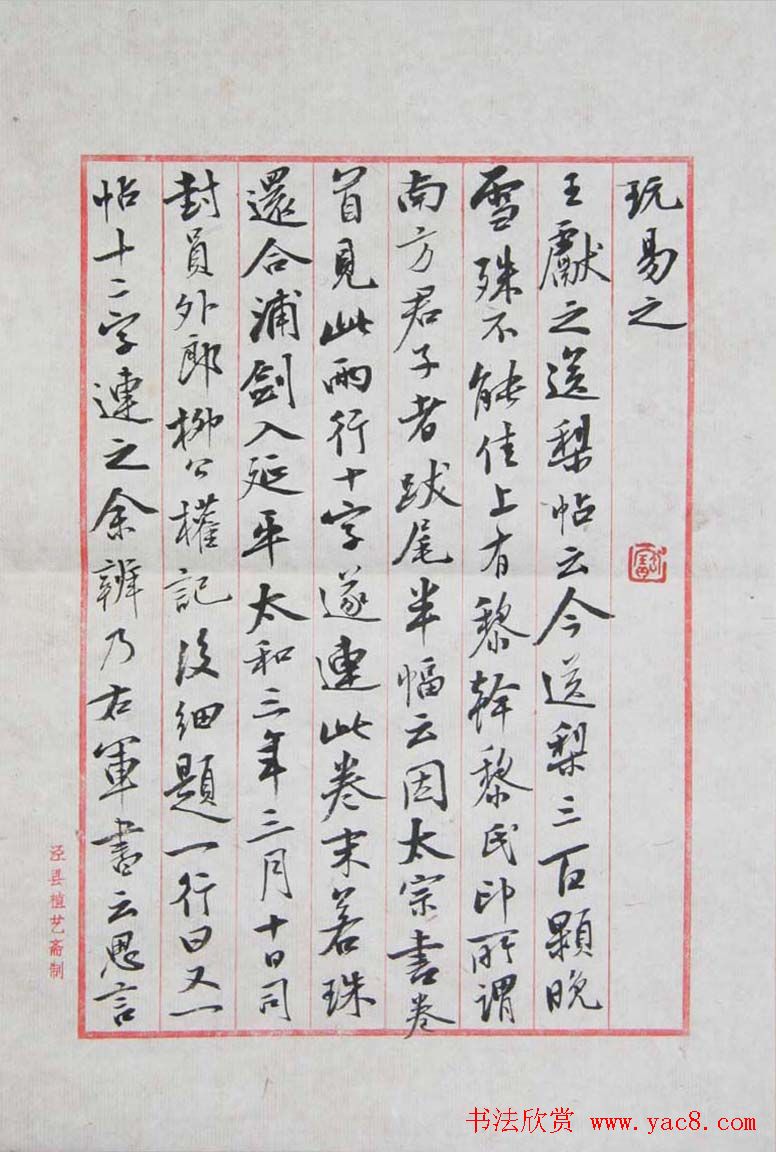 玩易之
王獻之送梨帖云今送梨三百顆晚
雪殊不能佳上有黎幹黎氏印所謂
南方君子者跋尾半幅云因太宗書卷
首見此兩行十字遂連此卷末若珠
還合浦劍入延平太和三年三月十日司
封員外郎柳公權記後細題一行曰又一
帖十二字連之余辨乃右軍書云思言
泾县植艺斋制
书法欣赏 www.yac8.com